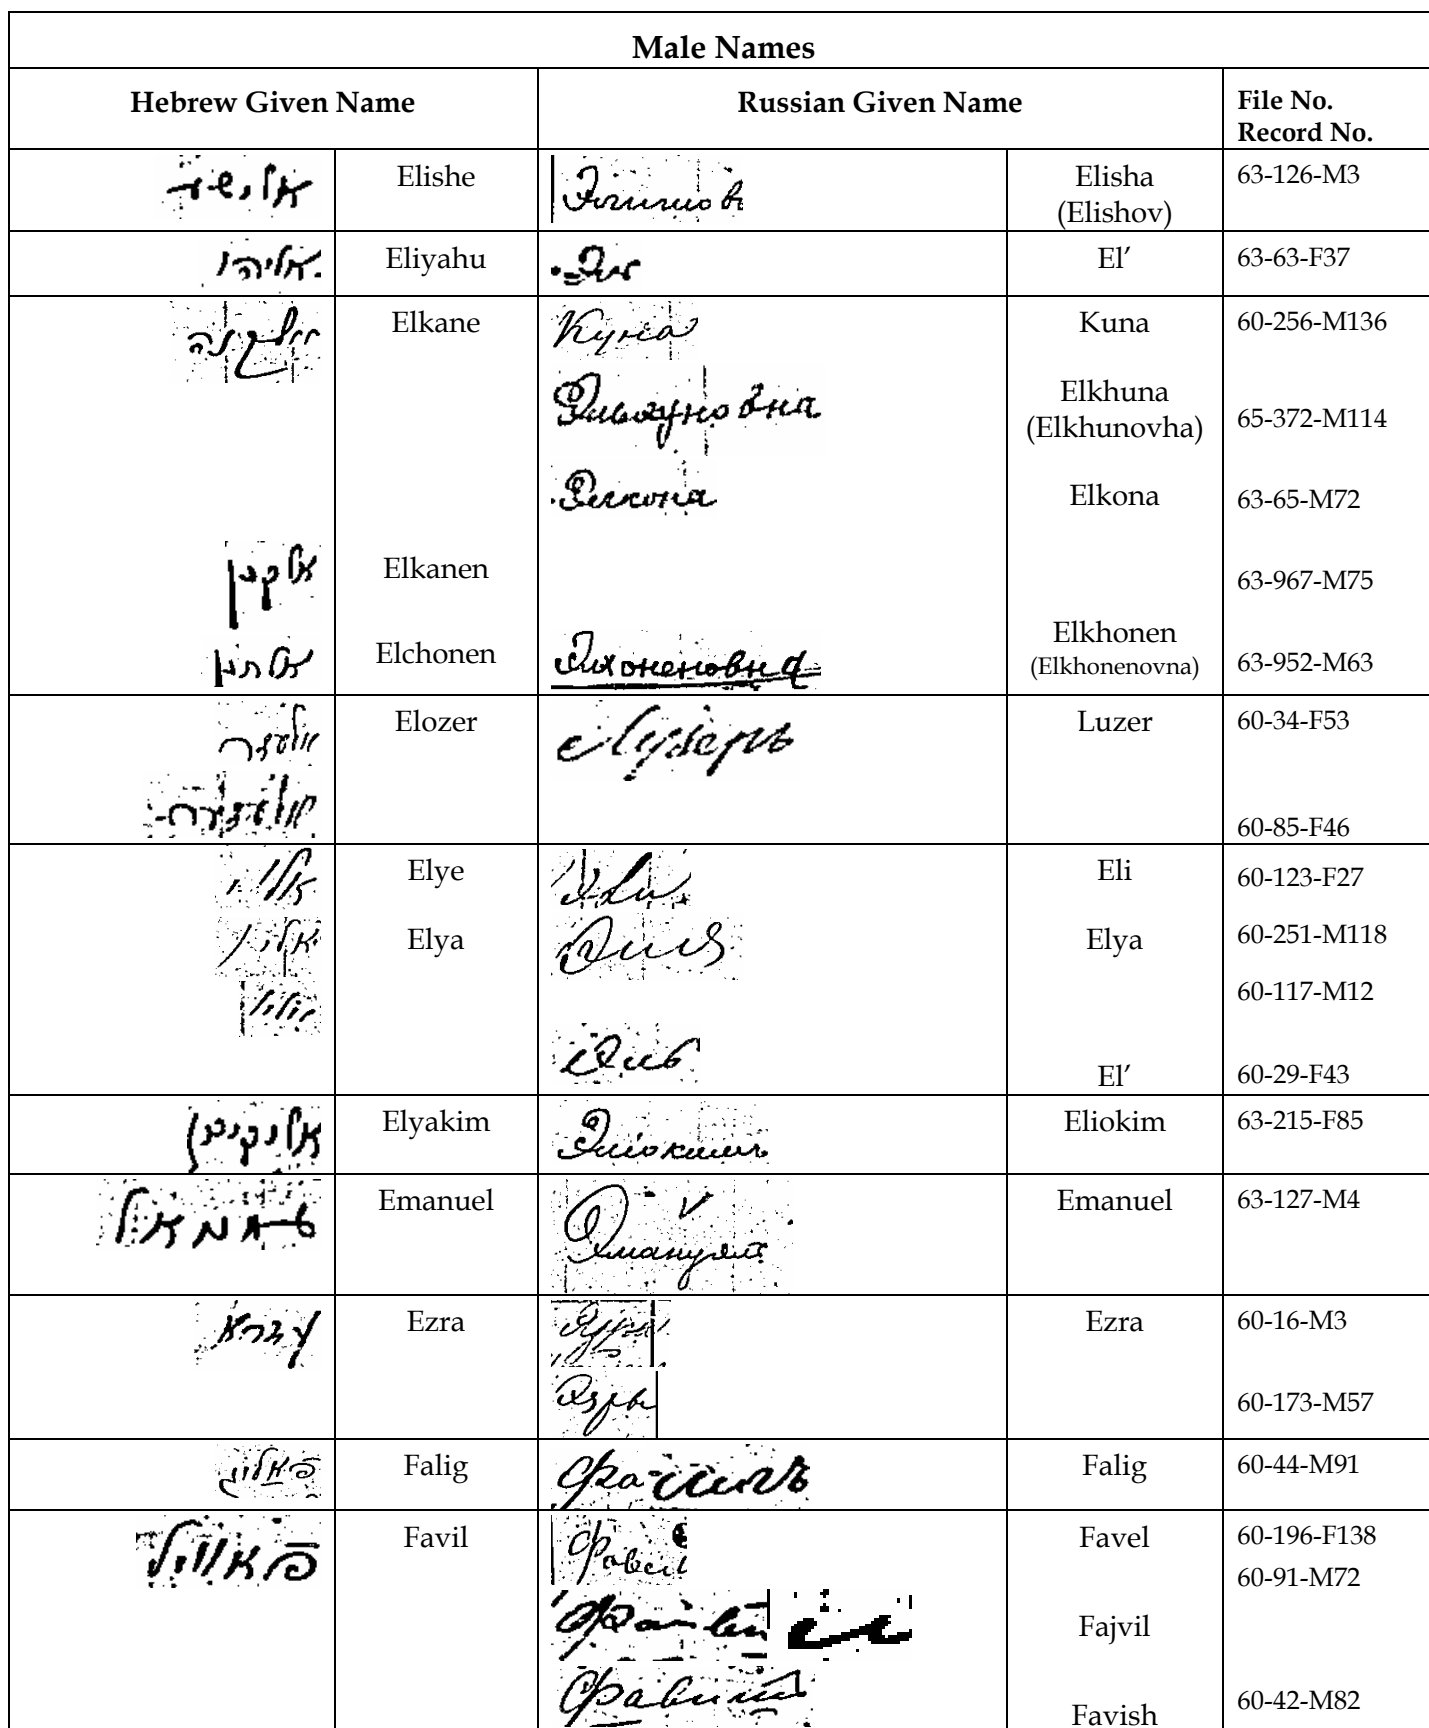 Male Names
Hebrew Given Name Russian Given Name File No.
Record No.
אלישע Elishe Элишов Elisha 63-126-M3
(Elishov)
אליהו Eliyahu Эль El’ 63-63-F37
אלקנה Elkane Куна Kuna 60-256-M136
Эльхуновна Elkhuna
(Elkhunovha) 65-372-M114
Элкона Elkona 63-65-M72
אלקנן Elkanen 63-967-M75
אלחנן Elchonen Элхоненовна Elkhonen
(Elkhonenovna) 63-952-M63
אלעזר Elozer Лузеръ Luzer 60-34-F53
60-85-F46
Elye Эли Eli 60-123-F27
Elya Эля Elya 60-251-M118
60-117-M12
Эль El’ 60-29-F43
Elyakim Эліокимъ Eliokim 63-215-F85
Emanuel Эмануель Emanuel 63-127-M4
עזרא Ezra Ezra 60-16-M3
Эзры 60-173-M57
פאליג Falig Фалигъ Falig 60-44-M91
פאוויל Favil Фавель Favel 60-196-F138
60-91-M72
Fajvil
Favish 60-42-M82